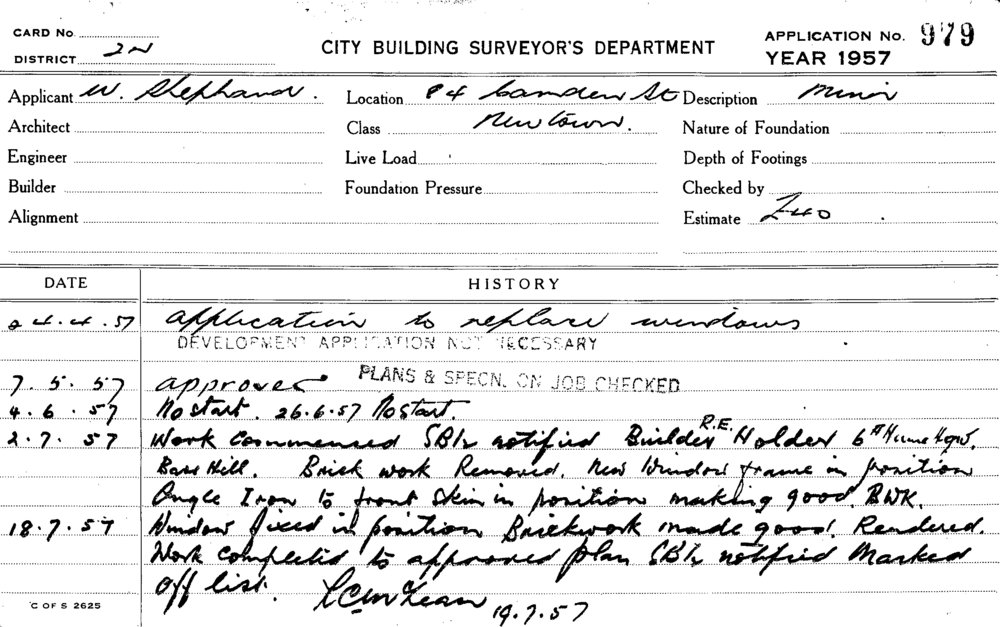 CARD No.
DISTRICT 2N
CITY BUILDING SURVEYOR'S DEPARTMENT
APPLICATION No. 979
YEAR 1957
Applicant W. Shephard. Location 84 Camden St Description Minor
Architect Class Newtown. Nature of Foundation
Engineer Live Load Depth of Footings
Builder Foundation Pressure Checked by
Alignment Estimate £40
DATE HISTORY
24.4.57 application to replace windows
DEVELOPMENT APPLICATION NOT NECESSARY
7.5.57 approved PLANS & SPECN. ON JOB CHECKED
4.6.57 No start. 26.6.57 No start.
2.7.57 Work commenced SBIr notified Builder R.E. Holder 6 Hume Hgw.
Bass Hill. Brick work Removed. New Window frame in position
Angle Iron to front Skin in position making good BWK.
18.7.57 Window fixed in position Brickwork made good. Rendered.
Work completed to approved plan SBIr notified Marked
Off list. L C McLean 19.7.57
C OF S 2625